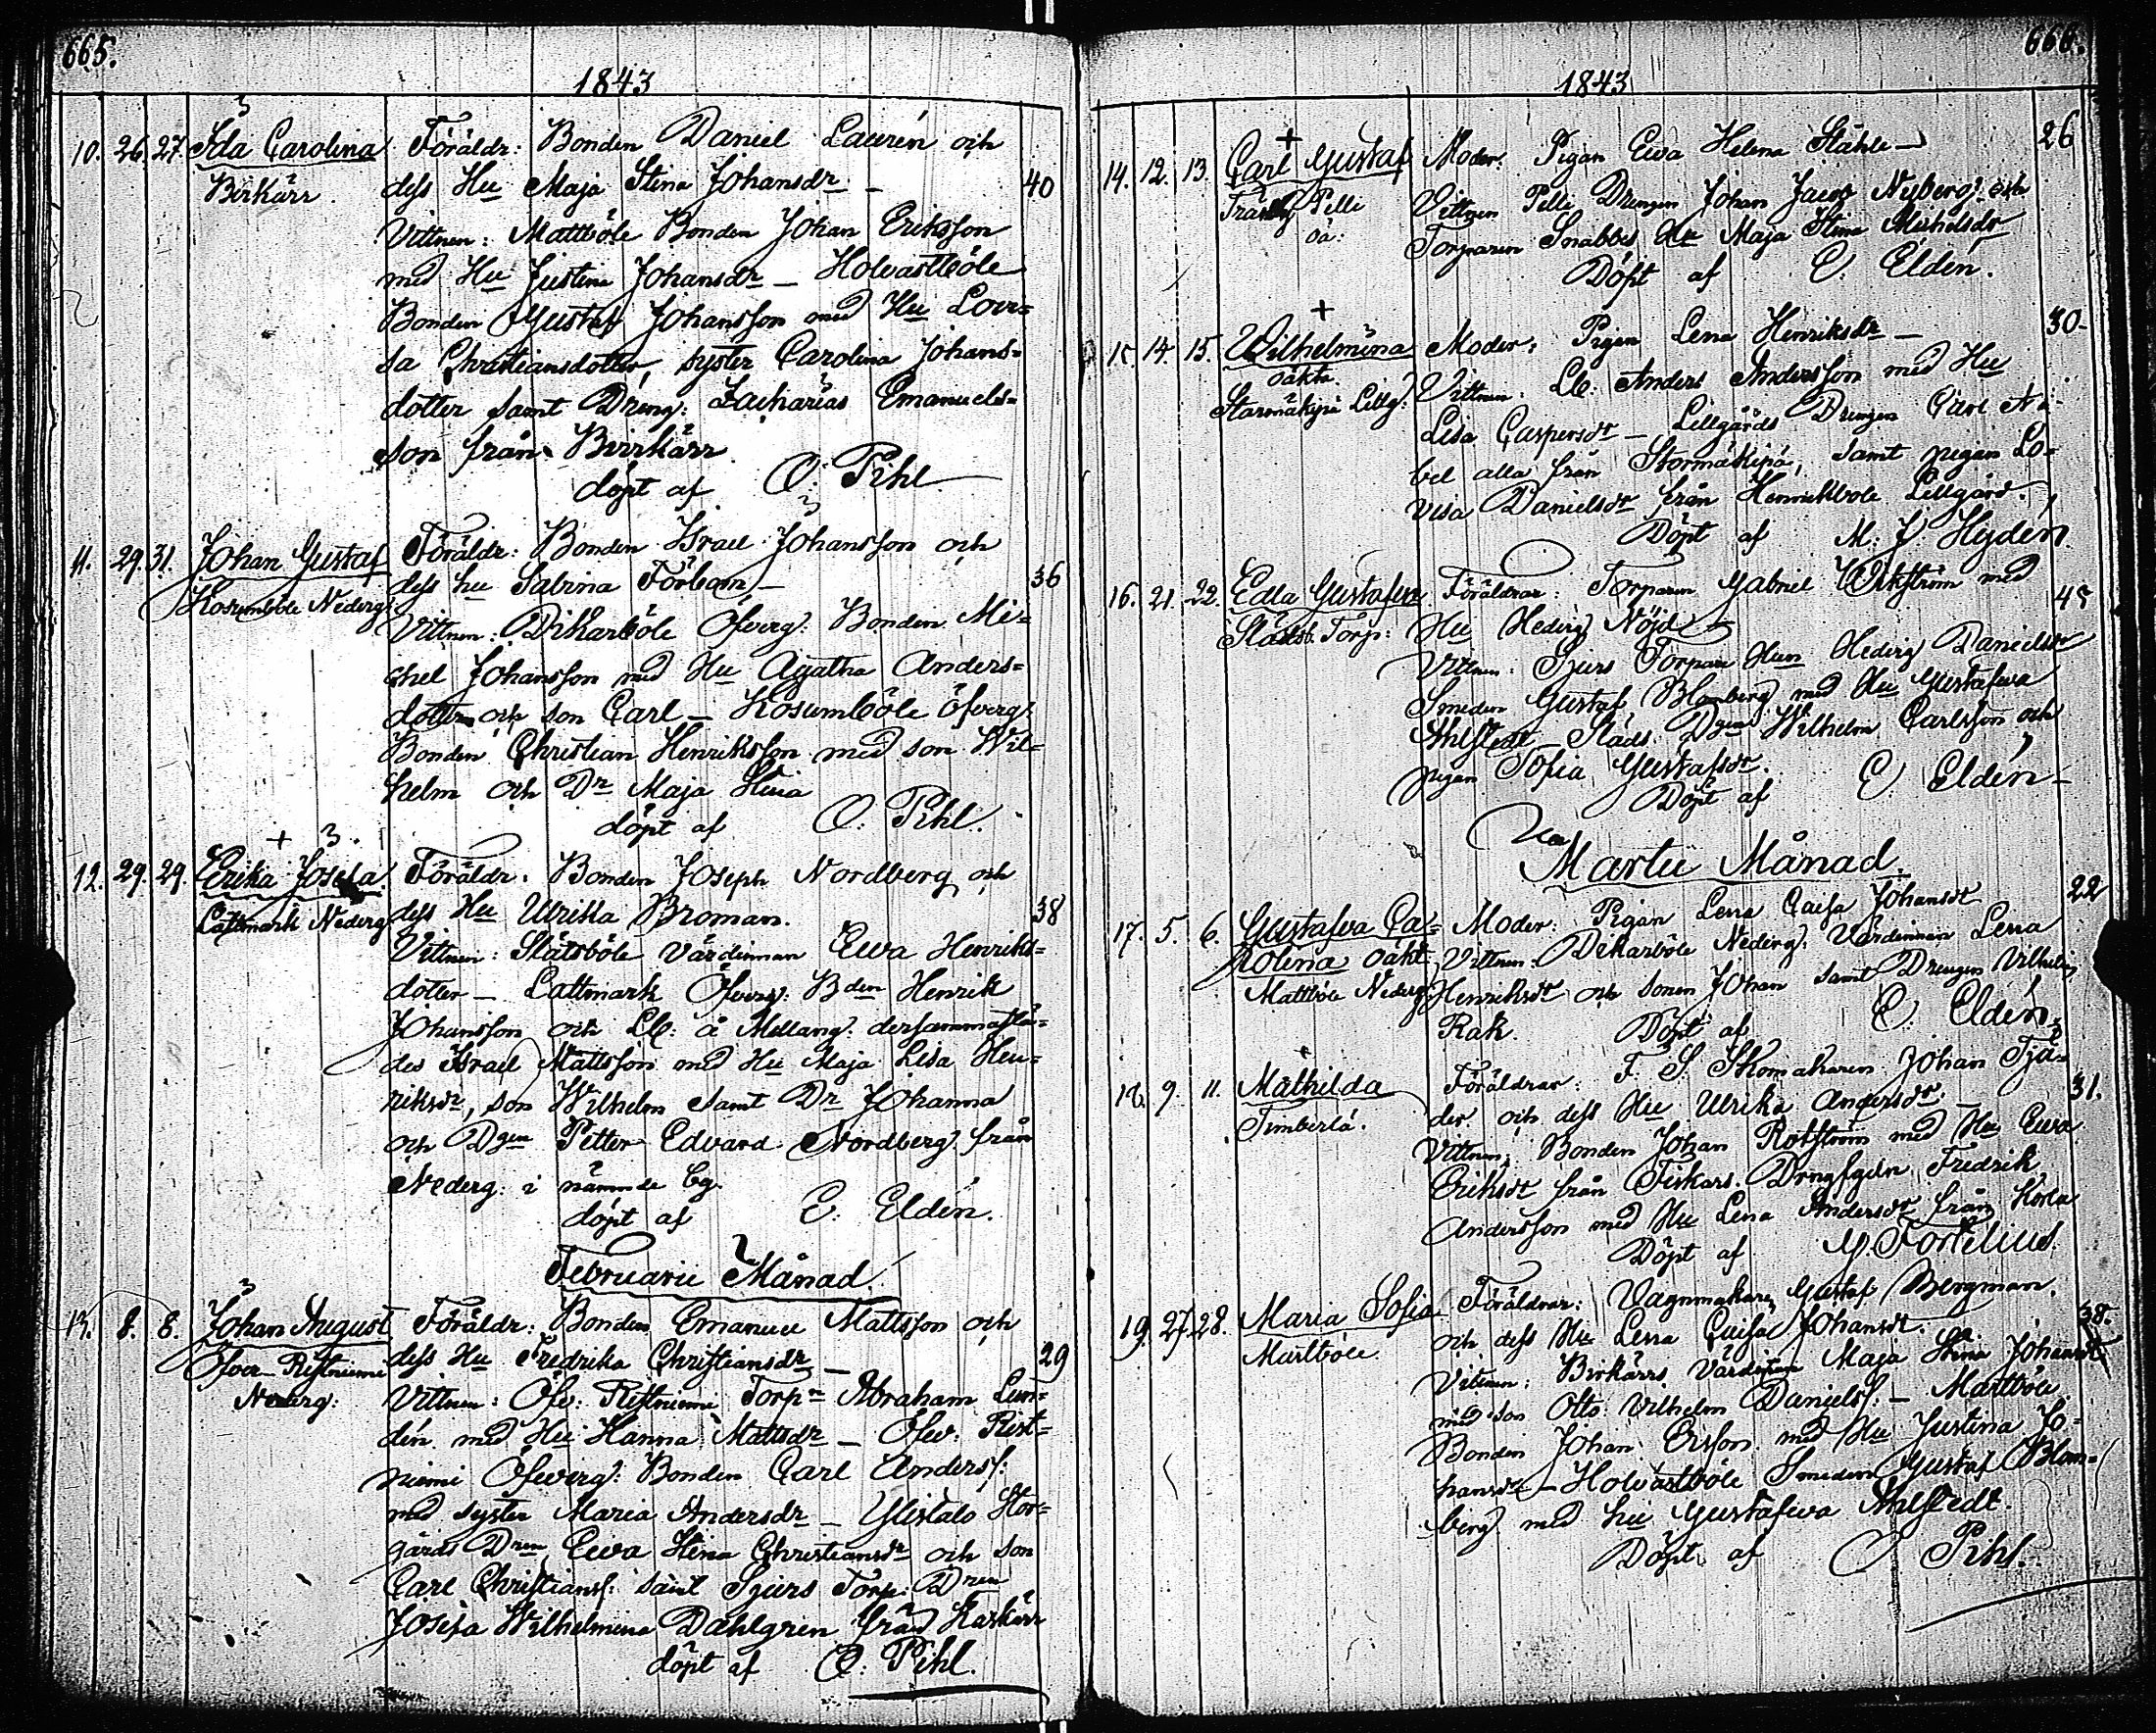 665.
1843
10. 26. 27. Ida Carolina Föräldr: Bonden Daniel Laurén och
Birkärr. dess Hu Maja Stina Johansdr – 40
Vittnen: Mattböle Bonden Johan Eriksson
med Hu Justina Johansdr – Holvastböle
Bonden Gustaf Johansson med Hu Lovi=
sa Christiansdotter, syster Carolina Johans=
dotter samt Dreng: Zacharias Emanuels=
son från Birrkärr
döpt af O: Pihl.
11. 29. 31. Johan Gustaf Föräldr: Bonden Israel Johansson och
Kosumböle Nederg: dess hu Sabina Förbom – 36
Vittnen: Dikarböle Öfverg: Bonden Mi=
chel Johansson med Hu Agatha Anders=
dotter och son Carl – Kosumböle Öfverg:
Bonden Christian Henriksson med son Wil=
helm och Dr Maja Stina
döpt af O: Pihl.
12. 29. 29. Erika Josefa Föräldr: Bonden Joseph Nordberg och
Lattmark Nederg dess Hu Ulrika Broman. 38
Vittnen: Slätsböle värdinnan Ewa Henriks=
dotter – Lattmark Öfverg: Bden Henrik
Johansson och Lb: å Mellang: dersammastä=
des Israel Mattsson med Hu Maja Lisa Hen=
riksdr, son Wilhelm samt Dr Johanna
och Dgen Petter Edvard Nordberg från
Nederg: i nämnde by.
döpt af E: Eldén.
Februarii Månad.
13. 8. 8. Johan August Föräldr: Bonden Emanuel Mattsson och
Öfver Ristniemi dess Hu Fredrika Christiansdr – 29
Nederg: Vittnen: Öfv: Ristniemi Torpn Abraham Lun=
dén med Hu Hanna Mattsdr – Öfv: Rist=
niemi Öfverg: Bonden Carl Anderss:
med syster Maria Andersdr – Ylistalo Stor=
gårds Drem Ewa Stina Christiansdr och son
Carl Christianss: samt Sjurs Torp: Dren
Josefa Wilhelmina Dahlgren från Karkärr
döpt af O: Pihl.
666.
1843
14. 12. 13. Carl Gustaf Moder: Pigan Ewa Helena Ståhle – 26
Pelli Vittnen Pelli Drengen Johan Jacob Nyberg och
oä: Torparen Snabbes Hu Maja Stina Michelsdr
Döpt af E. Eldén.
15. 14. 15. Wilhelmina Moder: Pigan Lena Henriksdr – 30
oäkta. Vittnen: Lb: Anders Andersson med Hu
Starmäkipä Lillg: Lisa Caspersdr – Lillgårds Drengen Carl
bel alla från Stormäkipä, samt pigan Lo=
visa Danielsdr från Henrickböle Lillgård.
Döpt af M: J: Hydén.
16. 21. 22. Edla Gustafva Föräldrar: Torparen Gabriel med 45
Torp: Hu Hedvig Nöjd –
Vittnen: Sjurs Torpare Hun Hedvig Danielsdr
Smeden Gustaf Blomberg med Hu Gustafva
Ahlstedt – Släds Dgen Wilhelm Carlsson och
pigan Sofia Gustafsdr.
Döpt af E Eldén –
Martii Månad.
17. 5. 6. Gustafva Ca= Moder: Pigan Lena Caisa Johansdr 22
rolina oäkt Vittnen: Dikarböle Nederg: Värdinnan Lena
Mattböle Nederg: Henriksdr och sonen Johan samt Drengen Vilhelm
Rak. Döpt af E: Eldén.
18. 9. 11. Mathilda Föräldrar: F. S. Skomakaren Johan Tjä=
Timberlä. der och dess Hu Ulrika Andersdr. – 31.
Vittnen: Bonden Johan Rotström med Hu Ewa
Eriksdr från Fiskars. Fredrik
Andersson med Hu Lena Andersdr från Korla
Döpt af G. Fortelius.
19. 27. 28. Maria Sofia Föräldrar: Vagnmakaren Gustaf Bergman.
Mattböle. och dess Hu Lena Caisa Johansdr. 38.
Vittnen: Birkärrs Värdinan Maja Stina Johansdr
med son Otto Vilhelm Danielss: – Mattböle
Bonden Johan Ersson med Hu Justina Jo=
hansdr – Holvastböle Smeden Gustaf Blom=
berg med hu Gustafva Ahlstedt.
Döpt af O Pihl.